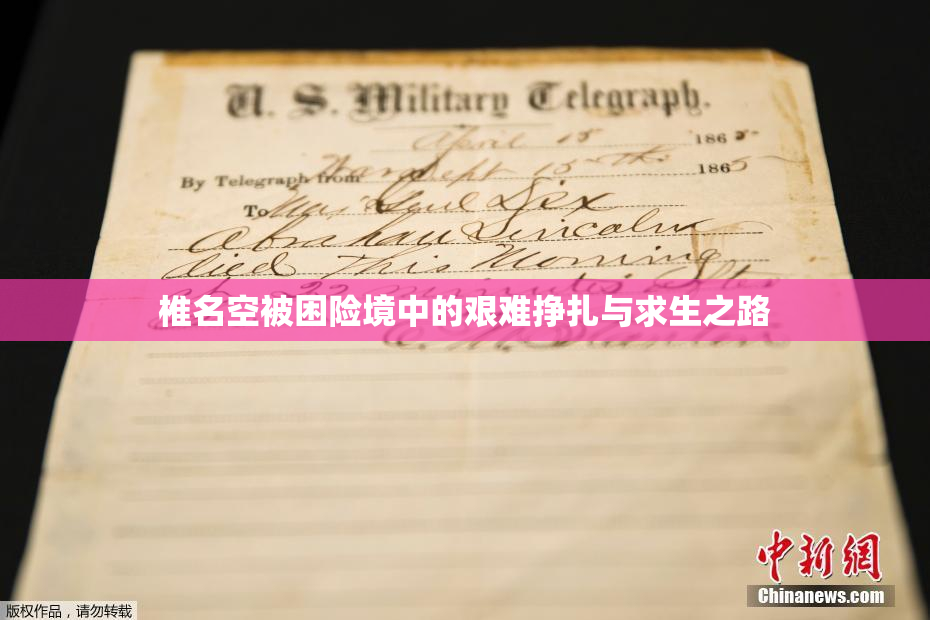 U. S. Military Telegraph.
April 15 1865
By Telegraph from War Dept 15th 1865
To Maj Genl Dix
Abraham Lincoln
died This Morning
at 22 minutes After
椎名空被困险境中的艰难挣扎与求生之路
E. M. Stanton
中新网
Chinanews.com
版权作品,请勿转载